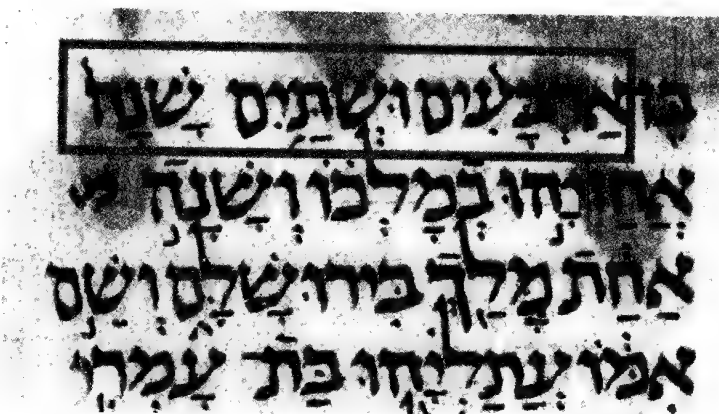 בֶּן אַרְבָּעִים וּשְׁתַּיִם שָׁנָה
אֲחַזְיָהוּ בְמָלְכוֹ וְשָׁנָה
אַחַת מָלַךְ בִּירוּשָׁלִָם וְשֵׁם
אִמּוֹ עֲתַלְיָהוּ בַּת עָמְרִי